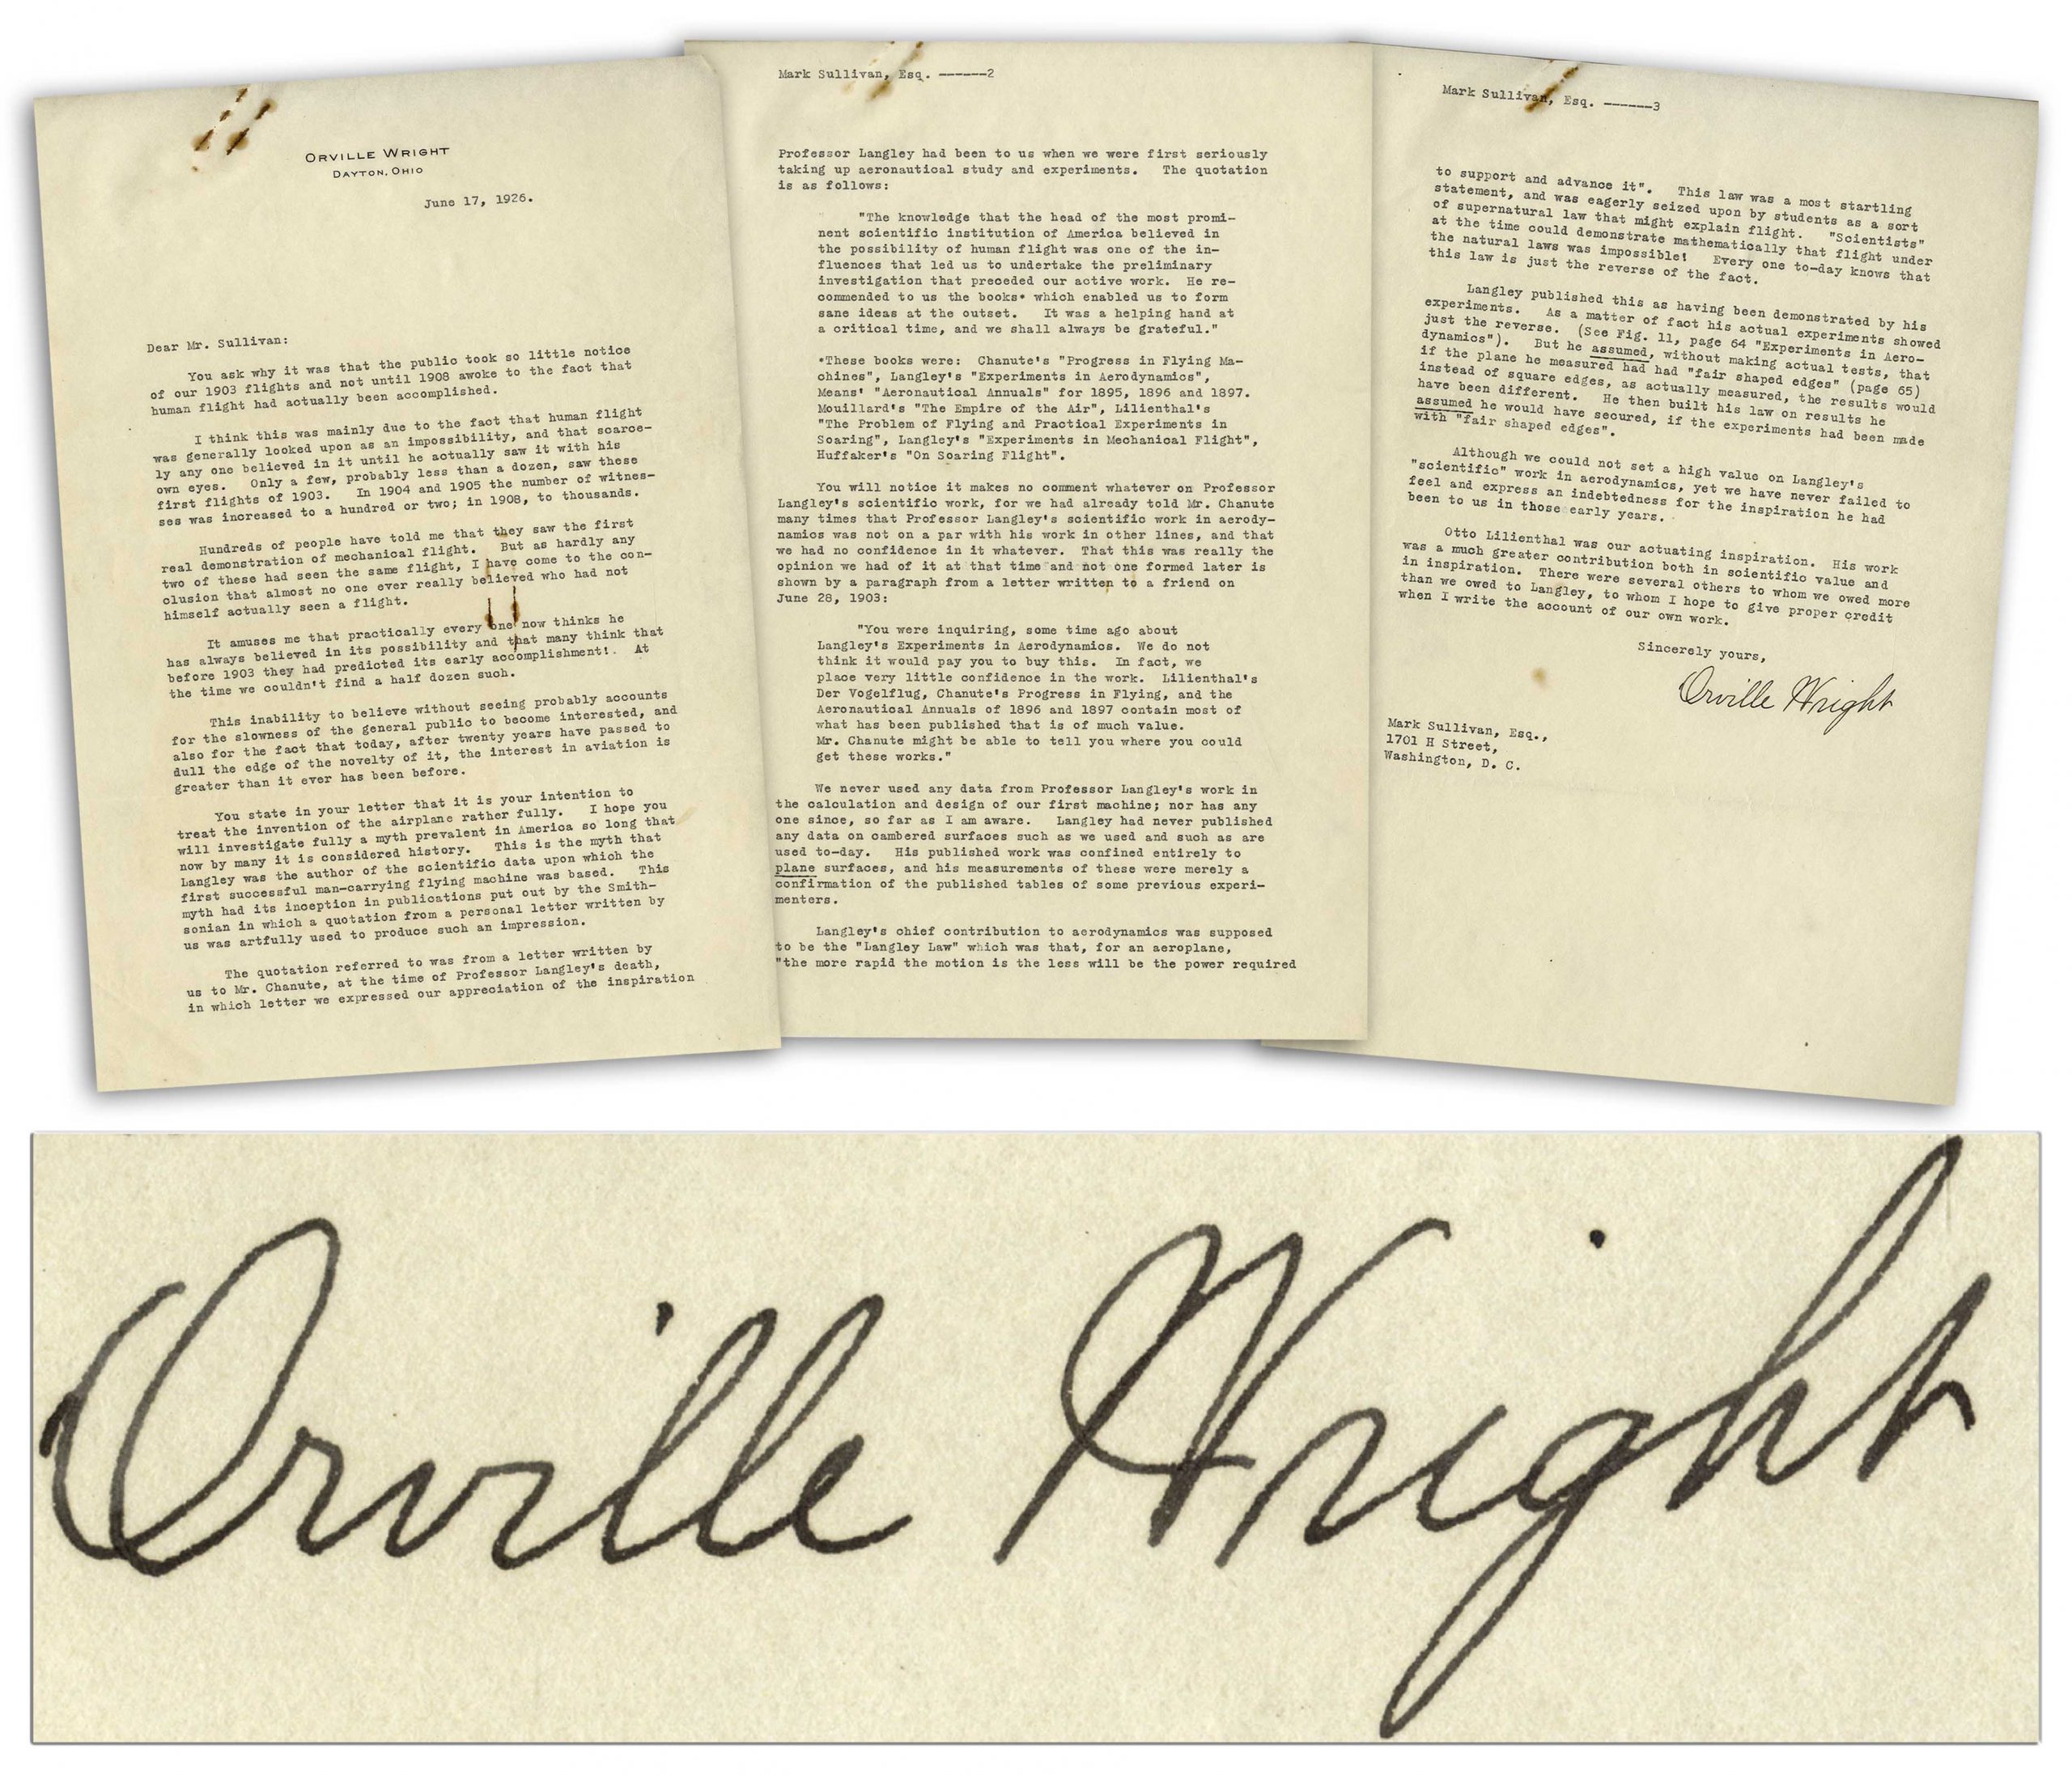 ORVILLE WRIGHT
DAYTON, OHIO
June 17, 1926.
Dear Mr. Sullivan:
You ask why it was that the public took so little notice
of our 1903 flights and not until 1908 awoke to the fact that
human flight had actually been accomplished.
I think this was mainly due to the fact that human flight
was generally looked upon as an impossibility, and that scarce-
ly any one believed in it until he actually saw it with his
own eyes. Only a few, probably less than a dozen, saw these
first flights of 1903. In 1904 and 1905 the number of witnes-
ses was increased to a hundred or two; in 1908, to thousands.
Hundreds of people have told me that they saw the first
real demonstration of mechanical flight. But as hardly any
two of these had seen the same flight, I have come to the con-
clusion that almost no one ever really believed who had not
himself actually seen a flight.
It amuses me that practically every one now thinks he
has always believed in its possibility and that many think that
before 1903 they had predicted its early accomplishment! At
the time we couldn't find a half dozen such.
This inability to believe without seeing probably accounts
for the slowness of the general public to become interested, and
also for the fact that today, after twenty years have passed to
dull the edge of the novelty of it, the interest in aviation is
greater than it ever has been before.
You state in your letter that it is your intention to
treat the invention of the airplane rather fully. I hope you
will investigate fully a myth prevalent in America so long that
now by many it is considered history. This is the myth that
Langley was the author of the scientific data upon which the
first successful man-carrying flying machine was based. This
myth had its inception in publications put out by the Smith-
sonian in which a quotation from a personal letter written by
us was artfully used to produce such an impression.
The quotation referred to was from a letter written by
us to Mr. Chanute, at the time of Professor Langley's death,
in which letter we expressed our appreciation of the inspiration
Mark Sullivan, Esq. ------2
Professor Langley had been to us when we were first seriously
taking up aeronautical study and experiments. The quotation
is as follows:
"The knowledge that the head of the most promi-
nent scientific institution of America believed in
the possibility of human flight was one of the in-
fluences that led us to undertake the preliminary
investigation that preceded our active work. He re-
commended to us the books* which enabled us to form
sane ideas at the outset. It was a helping hand at
a critical time, and we shall always be grateful."
*These books were: Chanute's "Progress in Flying Ma-
chines", Langley's "Experiments in Aerodynamics",
Means' "Aeronautical Annuals" for 1895, 1896 and 1897.
Mouillard's "The Empire of the Air", Lilienthal's
"The Problem of Flying and Practical Experiments in
Soaring", Langley's "Experiments in Mechanical Flight",
Huffaker's "On Soaring Flight".
You will notice it makes no comment whatever on Professor
Langley's scientific work, for we had already told Mr. Chanute
many times that Professor Langley's scientific work in aerody-
namics was not on a par with his work in other lines, and that
we had no confidence in it whatever. That this was really the
opinion we had of it at that time and not one formed later is
shown by a paragraph from a letter written to a friend on
June 28, 1903:
"You were inquiring, some time ago about
Langley's Experiments in Aerodynamics. We do not
think it would pay you to buy this. In fact, we
place very little confidence in the work. Lilienthal's
Der Vogelflug, Chanute's Progress in Flying, and the
Aeronautical Annuals of 1896 and 1897 contain most of
what has been published that is of much value.
Mr. Chanute might be able to tell you where you could
get these works."
We never used any data from Professor Langley's work in
the calculation and design of our first machine; nor has any
one since, so far as I am aware. Langley had never published
any data on cambered surfaces such as we used and such as are
used to-day. His published work was confined entirely to
plane surfaces, and his measurements of these were merely a
confirmation of the published tables of some previous experi-
menters.
Langley's chief contribution to aerodynamics was supposed
to be the "Langley Law" which was that, for an aeroplane,
"the more rapid the motion is the less will be the power required
Mark Sullivan, Esq. ------3
to support and advance it". This law was a most startling
statement, and was eagerly seized upon by students as a sort
of supernatural law that might explain flight. "Scientists"
at the time could demonstrate mathematically that flight under
the natural laws was impossible! Every one to-day knows that
this law is just the reverse of the fact.
Langley published this as having been demonstrated by his
experiments. As a matter of fact his actual experiments showed
just the reverse. (See Fig. 11, page 64 "Experiments in Aero-
dynamics"). But he assumed, without making actual tests, that
if the plane he measured had had "fair shaped edges" (page 65)
instead of square edges, as actually measured, the results would
have been different. He then built his law on results he
assumed he would have secured, if the experiments had been made
with "fair shaped edges".
Although we could not set a high value on Langley's
"scientific" work in aerodynamics, yet we have never failed to
feel and express an indebtedness for the inspiration he had
been to us in those early years.
Otto Lilienthal was our actuating inspiration. His work
was a much greater contribution both in scientific value and
in inspiration. There were several others to whom we owed more
than we owed to Langley, to whom I hope to give proper credit
when I write the account of our own work.
Sincerely yours,
Orville Wright
Mark Sullivan, Esq.,
1701 H Street,
Washington, D. C.
Orville Wright